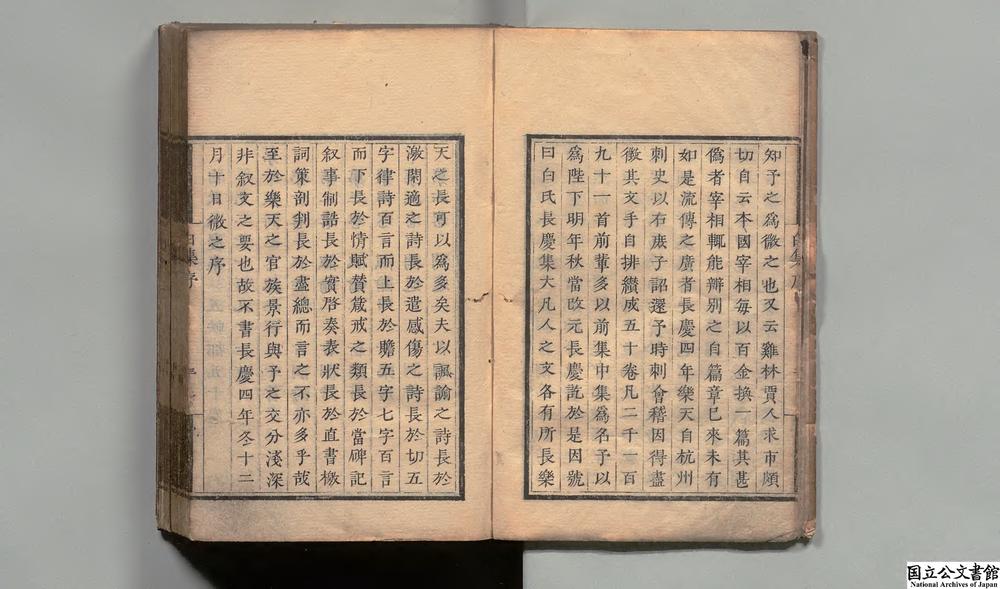 知予之爲微之也又云雞林賈人求市頗
切自云本國宰相每以百金換一篇其甚
僞者宰相輒能辨別之自篇章已來未有
如是流傳之廣者長慶四年樂天自杭州
刺史以右庶子詔還予時刺會稽因得盡
徵其文手自排纘成五十卷凡二千一百
九十一首前輩多以前集中集爲名予以
爲陛下明年秋當改元長慶訖於是因號
曰白氏長慶集大凡人之文各有所長樂
天之長可以爲多矣夫以諷諭之詩長於
激閑適之詩長於遣感傷之詩長於切五
字律詩百言而上長於贍五字七字百言
而下長於情賦贊箴戒之類長於當碑記
叙事制誥長於實啓奏表狀長於直書檄
詞策剖判長於盡總而言之不亦多乎哉
至於樂天之官族景行與予之交分淺深
非叙文之要也故不書長慶四年冬十二
月十日微之序
白集序
国立公文書館
National Archives of Japan